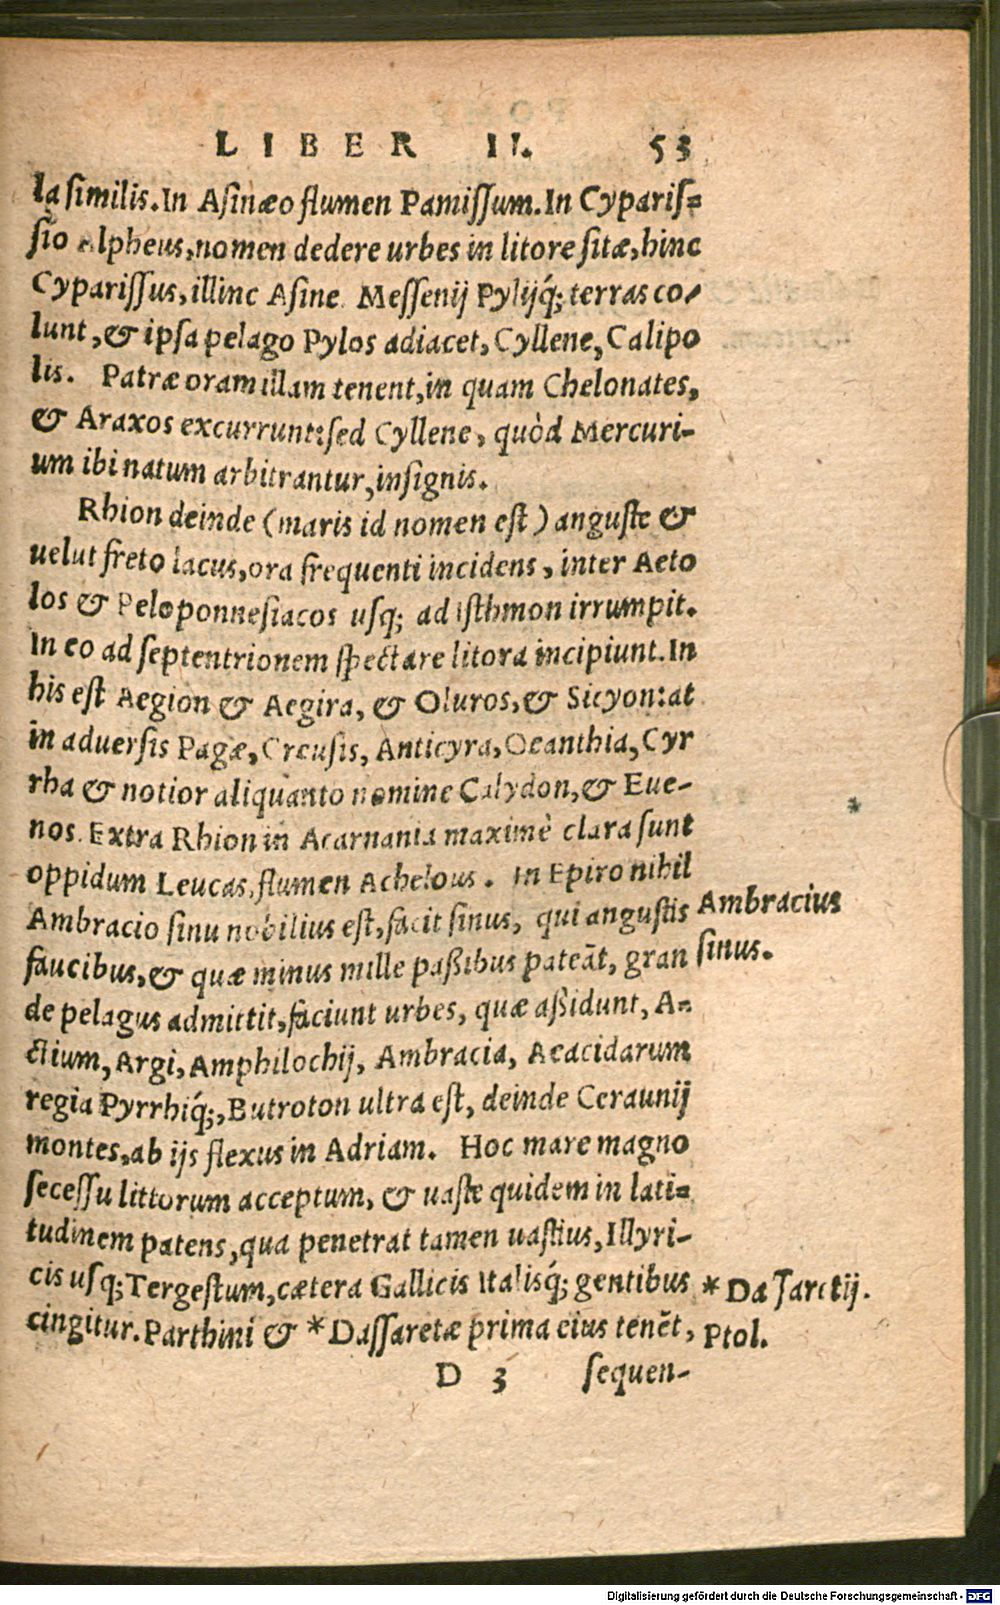 LIBER II. 53
la ſimilis. In Aſinæo flumen Pamiſſum. In Cypariſ=
ſio Alpheus, nomen dedere urbes in litore ſitæ, hinc
Cypariſſus, illinc Aſine. Meſſenij Pylijq́; terras co-
lunt, & ipſa pelago Pylos adiacet, Cyllene, Calipo
lis. Patræ oram illam tenent, in quam Chelonates,
& Araxos excurrunt: ſed Cyllene, quòd Mercuri-
um ibi natum arbitrantur, inſignis.
Rhion deinde (maris id nomen eſt) anguſte &
uelut freto lacus, ora frequenti incidens, inter Aeto
los & Peloponneſiacos uſq; ad Iſthmon irrumpit.
In eo ad ſeptentrionem ſpectare litora incipiunt. In
his eſt Aegion & Aegira, & Oluros, & Sicyon: at
in aduerſis Pagæ, Creuſis, Anticyra, Oeanthia, Cyr
rha & notior aliquanto nomine Calydon, & Eue-
nos. Extra Rhion in Acarnania maximè clara ſunt
oppidum Leucas, flumen Achelous. In Epiro nihil
Ambracio ſinu nobilius eſt, facit ſinus, qui anguſtis
Ambracius
faucibus, & quæ minus mille paßibus pateāt, gran
ſinus.
de pelagus admittit, faciunt urbes, quæ aßidunt, A=
ctium, Argi, Amphilochij, Ambracia, Aeacidarum
regia Pyrrhiq́;, Butroton ultra eſt, deinde Ceraunij
montes, ab ijs flexus in Adriam. Hoc mare magno
ſeceſſu littorum acceptum, & uaſte quidem in lati=
tudinem patens, qua penetrat tamen uaſtius, Illyri-
cis uſq; Tergeſtum, cætera Gallicis Italiſq́; gentibus
* Daſſaretij.
cingitur. Parthini & * Daſſaretæ prima eius tenēt,
Ptol.
D 3 ſequen-
Digitalisierung gefördert durch die Deutsche Forschungsgemeinschaft - DFG